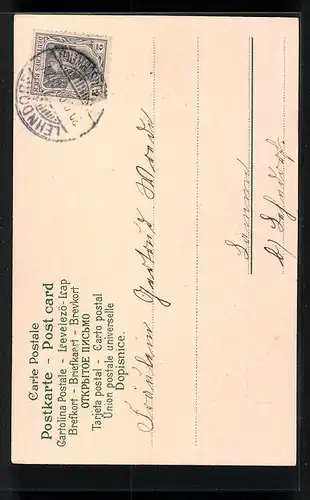 Carte Postale
Postkarte - Post card
Cartolina Postale - Levelező-Lap
Brefkort - Briefkaart - Brevkort
ОТКРЫТОЕ ПИСЬМО
Tarjeta postal - Carto postal
Union postale universelle
Dopisnice.
Fräulein Gertrud Wrede
Lamme
b/
LEHNDORF
2